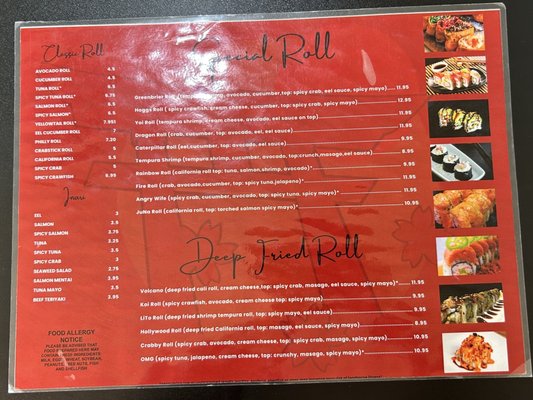 Classic Roll
AVOCADO ROLL 4.5
CUCUMBER ROLL 4.5
TUNA ROLL* 6.5
SPICY TUNA ROLL* 6.75
SALMON ROLL* 6.5
SPICY SALMON* 6.5
YELLOWTAIL ROLL* 7.95
EEL CUCUMBER ROLL 7
PHILLY ROLL 7.25
CRABSTICK ROLL 5
CALIFORNIA ROLL 5.5
SPICY CRAB 6
SPICY CRAWFISH 6.95
Inari
EEL 3
SALMON 3.5
SPICY SALMON 3.75
TUNA 3.25
SPICY TUNA 3.5
SPICY CRAB 3
SEAWEED SALAD 2.75
SALMON MENTAI 3.95
TUNA MAYO 3.5
BEEF TERIYAKI 3.95
FOOD ALLERGY
NOTICE
PLEASE BE ADVISED THAT
FOOD PREPARED HERE MAY
CONTAIN THESE INGREDIENTS:
MILK, EGGS, WHEAT, SOYBEAN,
PEANUTS, TREE NUTS, FISH
AND SHELLFISH
Special Roll
Greenbrier Roll (tempura shrimp, avocado, cucumber,top: spicy crab, eel sauce, spicy mayo)..... 11.95
Hoggs Roll ( spicy crawfish, cream cheese, cucumber, top: spicy crab, spicy mayo) 12.95
Yoi Roll (tempura shrimp, cream cheese, avocado, eel sauce on top) 11.95
Dragon Roll (crab, cucumber, top: avocado, eel, eel sauce) 11.95
Caterpillar Roll (eel,cucumber, top: avocado, eel sauce) 11.95
Tempura Shrimp (tempura shrimp, cucumber, avocado, top:crunch,masago,eel sauce) 8.95
Rainbow Roll (california roll top: tuna, salmon,shrimp, avocado)* 9.95
Fire Roll (crab, avocado,cucumber, top: spicy tuna,jalapeno)* 11.95
Angry Wife (spicy crab, cucumber, avocado; top: spicy tuna, spicy mayo)* 11.95
JuNa Roll (california roll, top: torched salmon spicy mayo)* 10.95
Deep Fried Roll
Volcano (deep fried cali roll, cream cheese,top: spicy crab, masago, eel sauce, spicy mayo)* 11.95
Koi Roll (spicy crawfish, avocado, cream cheese top: spicy mayo) 9.95
LiTo Roll (deep fried shrimp tempura roll, top: eel sauce, spicy mayo) 9.95
Hollywood Roll (deep fried California roll, top: masago, eel sauce, spicy mayo) 8.95
Crabby Roll (spicy crab, avocado, cream cheese, top: spicy crab, masago, spicy mayo) 10.95
OMG (spicy tuna, jalapeno, cream cheese, top: crunchy, masago, spicy mayo)* 10.95